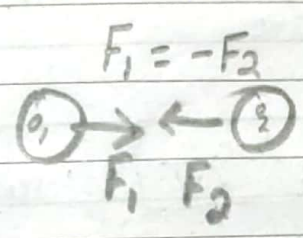 F₁ = -F₂
q₁ q₂
F₁ F₂